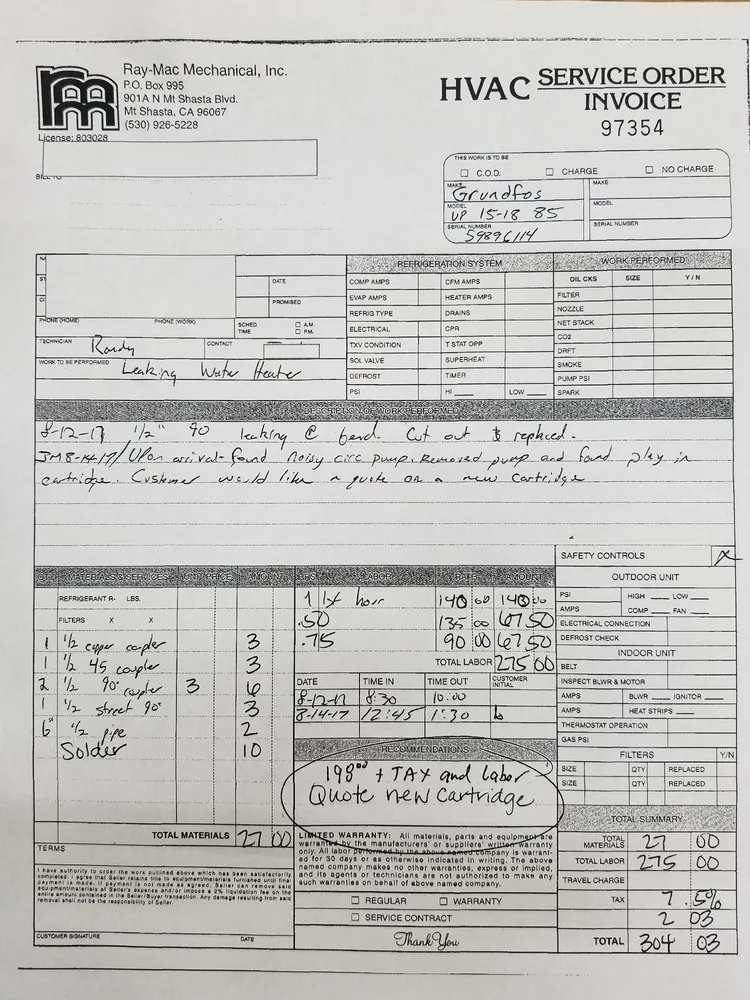 Ray-Mac Mechanical, Inc.
P.O. Box 995
901A N Mt Shasta Blvd.
Mt Shasta, CA 96067
(530) 926-5228
License: 803028
HVAC SERVICE ORDER
INVOICE
97354
THIS WORK IS TO BE
C.O.D. CHARGE NO CHARGE
MAKE Grundfos MAKE
MODEL UP 15-18 85 MODEL
SERIAL NUMBER 59896114 SERIAL NUMBER
REFRIGERATION SYSTEM WORK PERFORMED
DATE COMP AMPS CFM AMPS OIL CKS SIZE Y/N
PROMISED EVAP AMPS HEATER AMPS FILTER
REFRIG TYPE DRAINS NOZZLE
PHONE (HOME) PHONE (WORK) SCHED. TIME A.M. P.M. ELECTRICAL CPR NET STACK
TECHNICIAN Randy CONTACT TXV CONDITION T STAT OPP CO2
DRFT
WORK TO BE PERFORMED Leaking Water Heater SOL VALVE SUPERHEAT SMOKE
DEFROST TIMER PUMP PSI
PSI HI LOW SPARK
DESCRIPTION OF WORK PERFORMED
8-12-17 1/2" 90 leaking @ bend. Cut out & replaced.
JM 8-14-17/ Upon arrival found noisy circ pump. Removed pump and found play in
cartridge. Customer would like a quote on a new cartridge
SAFETY CONTROLS
QTY. MATERIALS & SERVICES UNIT PRICE AMOUNT HRS. LABOR RATE AMOUNT
OUTDOOR UNIT
REFRIGERANT R- LBS. 1 1st hour 140 00 140 00
PSI HIGH LOW
FILTERS X X .50 135 00 67 50
AMPS COMP FAN
1 1/2 copper coupler 3 .75 90 00 67 50
ELECTRICAL CONNECTION
DEFROST CHECK
1 1/2 45 coupler 3 TOTAL LABOR 275 00
INDOOR UNIT
BELT
2 1/2 90° coupler 3 6 DATE TIME IN TIME OUT CUSTOMER INITIAL
INSPECT BLWR & MOTOR
1 1/2 street 90° 3 8-12-17 8:30 10:00
AMPS BLWR IGNITOR
6" 1/2 pipe 2 8-14-17 12:45 1:30
AMPS HEAT STRIPS
THERMOSTAT OPERATION
Solder 10
GAS PSI
RECOMMENDATIONS
198.00 + TAX and labor
Quote new cartridge
FILTERS Y/N
SIZE QTY REPLACED
SIZE QTY REPLACED
TOTAL SUMMARY
TOTAL MATERIALS 27 00
TERMS
I have authority to order the work outlined above which has been satisfactorily
completed. I agree that Seller retains title to equipment/materials furnished until final
payment is made. If payment is not made as agreed, Seller can remove said
equipment/materials at Seller's expense and/or impose a 2% liquidation fee on the
entire amount contained in the Seller/Buyer transaction. Any damage resulting from said
removal shall not be the responsibility of Seller.
CUSTOMER SIGNATURE DATE
LIMITED WARRANTY: All materials, parts and equipment are
warranted by the manufacturers' or suppliers' written warranty
only. All labor performed by the above named company is warrant-
ed for 30 days or as otherwise indicated in writing. The above
named company makes no other warranties, express or implied,
and its agents or technicians are not authorized to make any
such warranties on behalf of above named company.
REGULAR WARRANTY
SERVICE CONTRACT
Thank You
TOTAL MATERIALS 27 00
TOTAL LABOR 275 00
TRAVEL CHARGE
TAX 7.5%
2 03
TOTAL 304 03